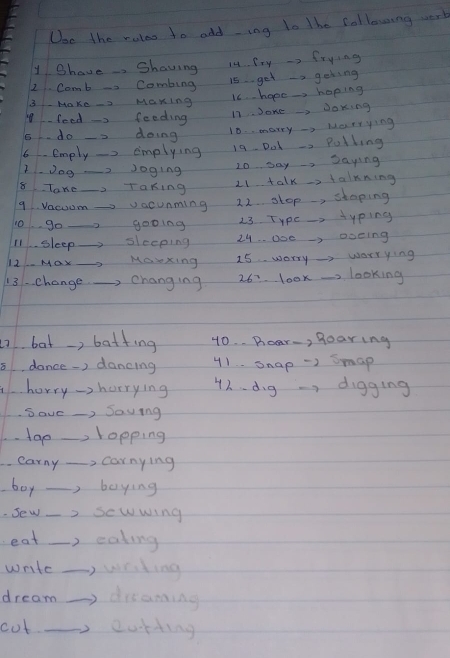 Use the rules to add -ing to the following verb
1 Shave -> Shaving
2 Comb -> Combing
3 Make -> Making
4 feed -> feeding
5 do -> doing
6 Emply -> emplying
7 Jog -> Joging
8 Take -> Taking
9 Vacuum -> vacunming
10 go -> goding
11 Sleep -> Sleeping
12 Max -> Maxxing
13 Change -> Changing
14 fry -> frying
15 get -> geting
16 hope -> hoping
17 Joke -> Joxing
18 marry -> Marrying
19 Put -> Putting
20 Say -> Saying
21 talk -> talkning
22 Stop -> Stoping
23 Type -> typing
24 use -> useing
25 worry -> worrying
26 look -> looking
27 bat -> batting
dance -> dancing
hurry -> hurrying
Save -> Saving
tap -> topping
carny -> carnying
boy -> boying
Sew -> Sewwing
eat -> eating
write -> writing
dream -> dreaming
cut -> cutting
40 Roar -> Roaring
41 Snap -> Smap
42 dig -> digging